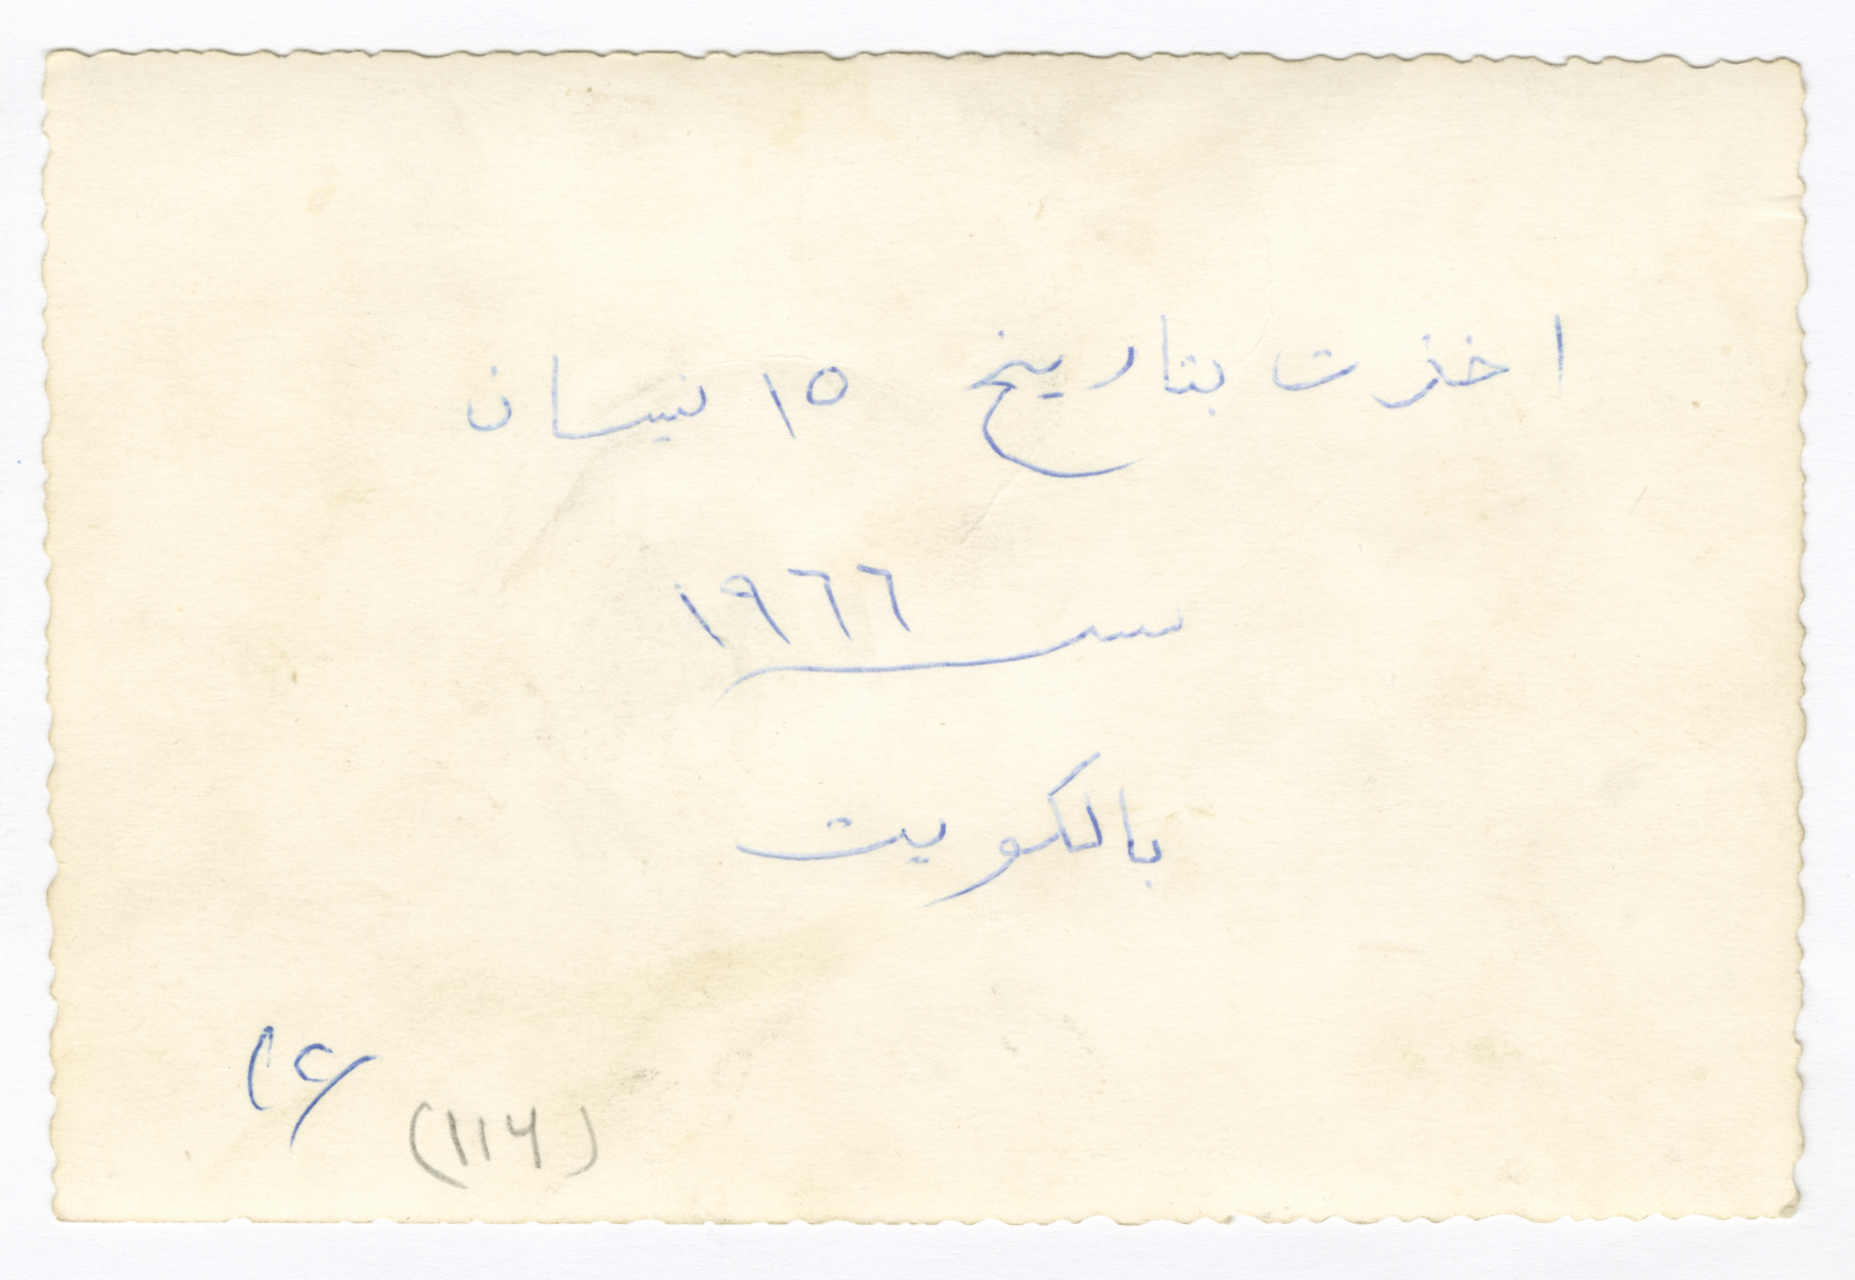 اخذت بتاريخ ١٥ نيسان
سنة ١٩٦٦
بالكويت
(114)